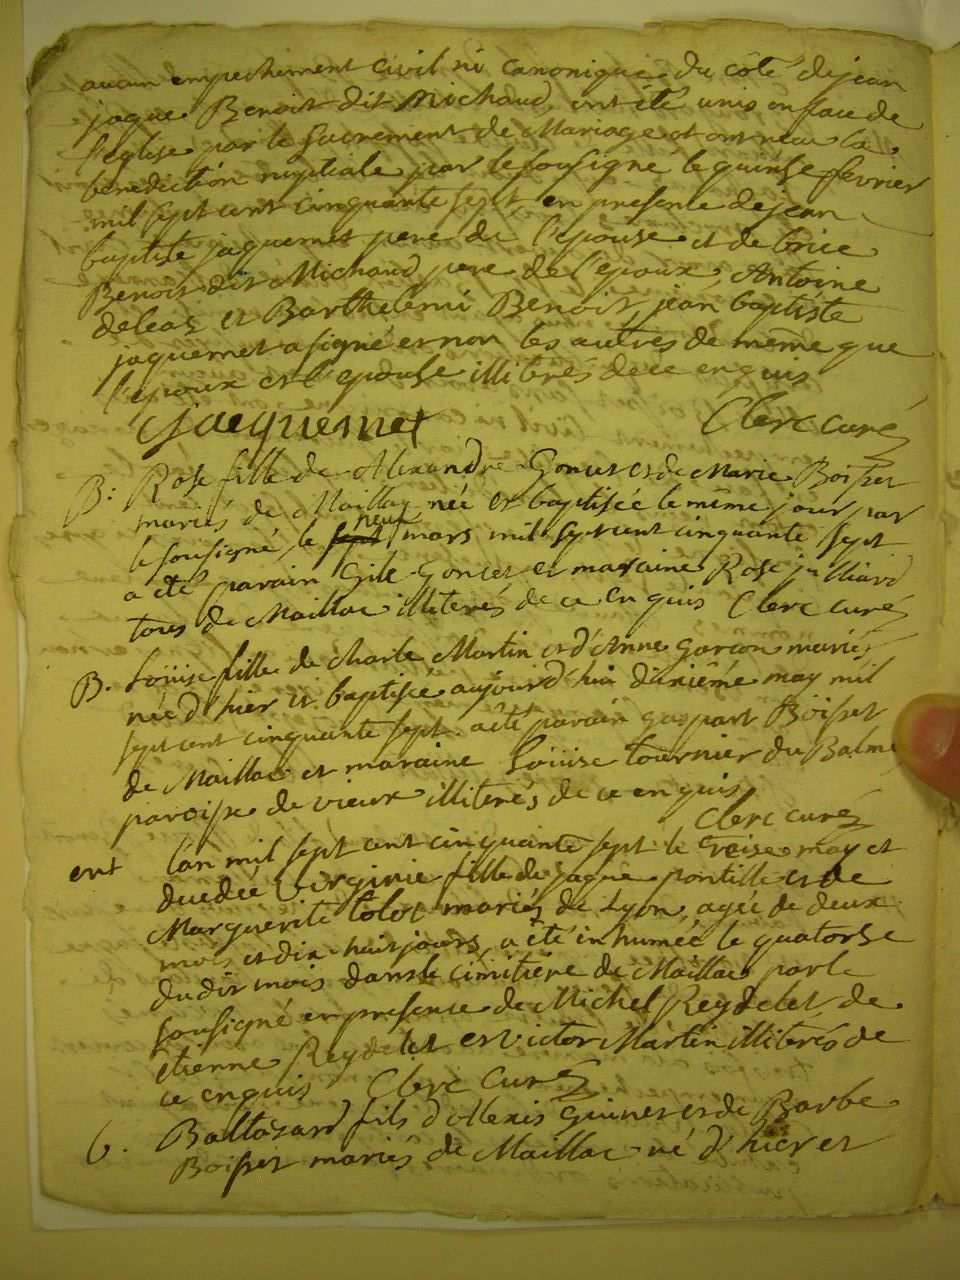 aucun empechement civil ni canonique du côté de jean
jaque Benoit dit Michaud, ont été unis en face de
l'eglise par le Sacrement de Mariage et ont reçu la
benediction nuptiale par le sousigné le quinse fevrier
mil sept cent cinquante sept, en presence de jean
baptiste jaquemet pere de l'epouse et de brice
Benoit dit Michaud pere de l'epoux, Antoine
deleas et Barthelemi Benoit, jean baptiste
jaquemet a signé et non les autres de même que
l'epoux et l'epouse illiterés de ce enquis
Jacquemet Clerc curé
B: Rose fille de Alexandre Goncet et de Marie Boisset
mariés de Maillac née et baptisée le même jour par
le sousigné, le sept neuf mars mil sept cent cinquante sept
a été parain Gile Goncet et maraine Rose julliard
tous de Maillac illiterés de ce enquis Clerc curé
B. Loüise fille de charle Martin et d'Anne garcon mariés
née d'hier et baptisée aujourd'hui dixiême may mil
sept cent cinquante sept a été parain gaspart Boisset
de Maillac et maraine Loüise tournier du Balme
paroisse de vieux illiterés de ce enquis
Clerc curé
ent l'an mil sept cent cinquante sept le treise may est
decedée Virginie fille de jaque pontille et de
Marguerite tolot mariés de Lyon, agée de deux
mois et dix huit jours, a été inhumée le quatorse
du dit mois dans le cimitiére de Maillac par le
sousigné en presence de Michel Reydelet, de
étienne Reydelet et victor Martin illiterés de
ce enquis Clerc Curé
b. Baltasard fils d'Alexis guinet et de Barbe
Boisset mariés de Maillac né d'hier et